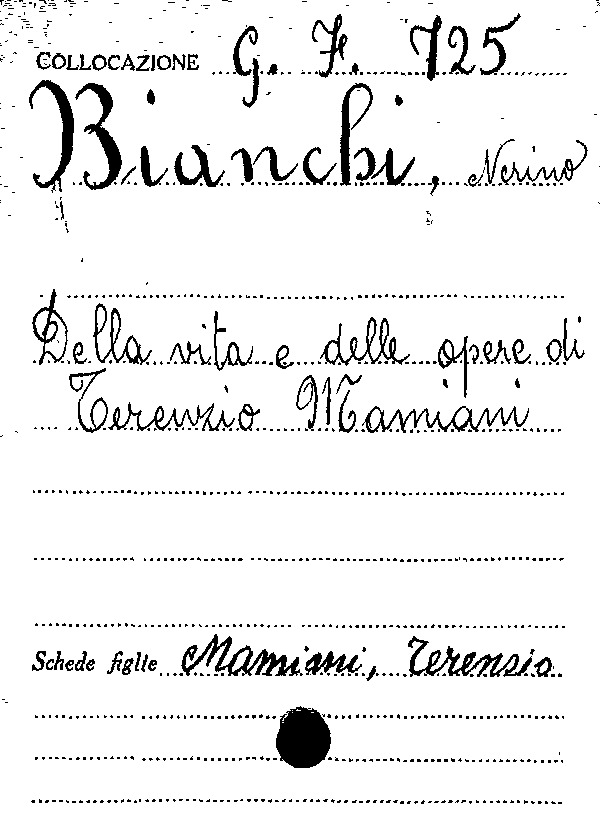 COLLOCAZIONE G. F. 725
Bianchi, Nerino
Della vita e delle opere di
Terenzio Mamiani
Schede figlie Mamiani, Terenzio